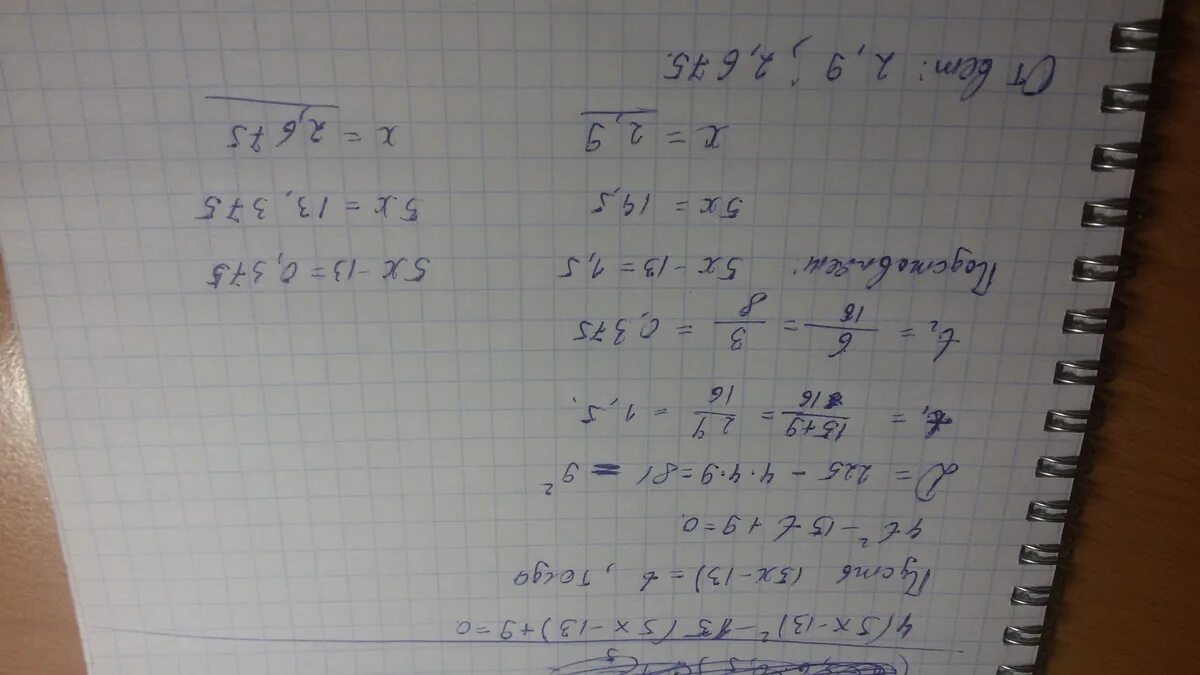 4(5x-13)² - 15(5x-13)+9=0
Пусть (5x-13)=t, тогда
4t²-15t+9=0
D = 225 - 4·4·9=81 = 9²
t₁ = 15+9/16 = 24/16 = 1,5.
t₂ = 6/16 = 3/8 = 0,375
Подставляем: 5x-13=1,5 5x-13=0,375
5x = 14,5 5x = 13,375
x = 2,9 x = 2,675
Ответ: 2,9; 2,675.